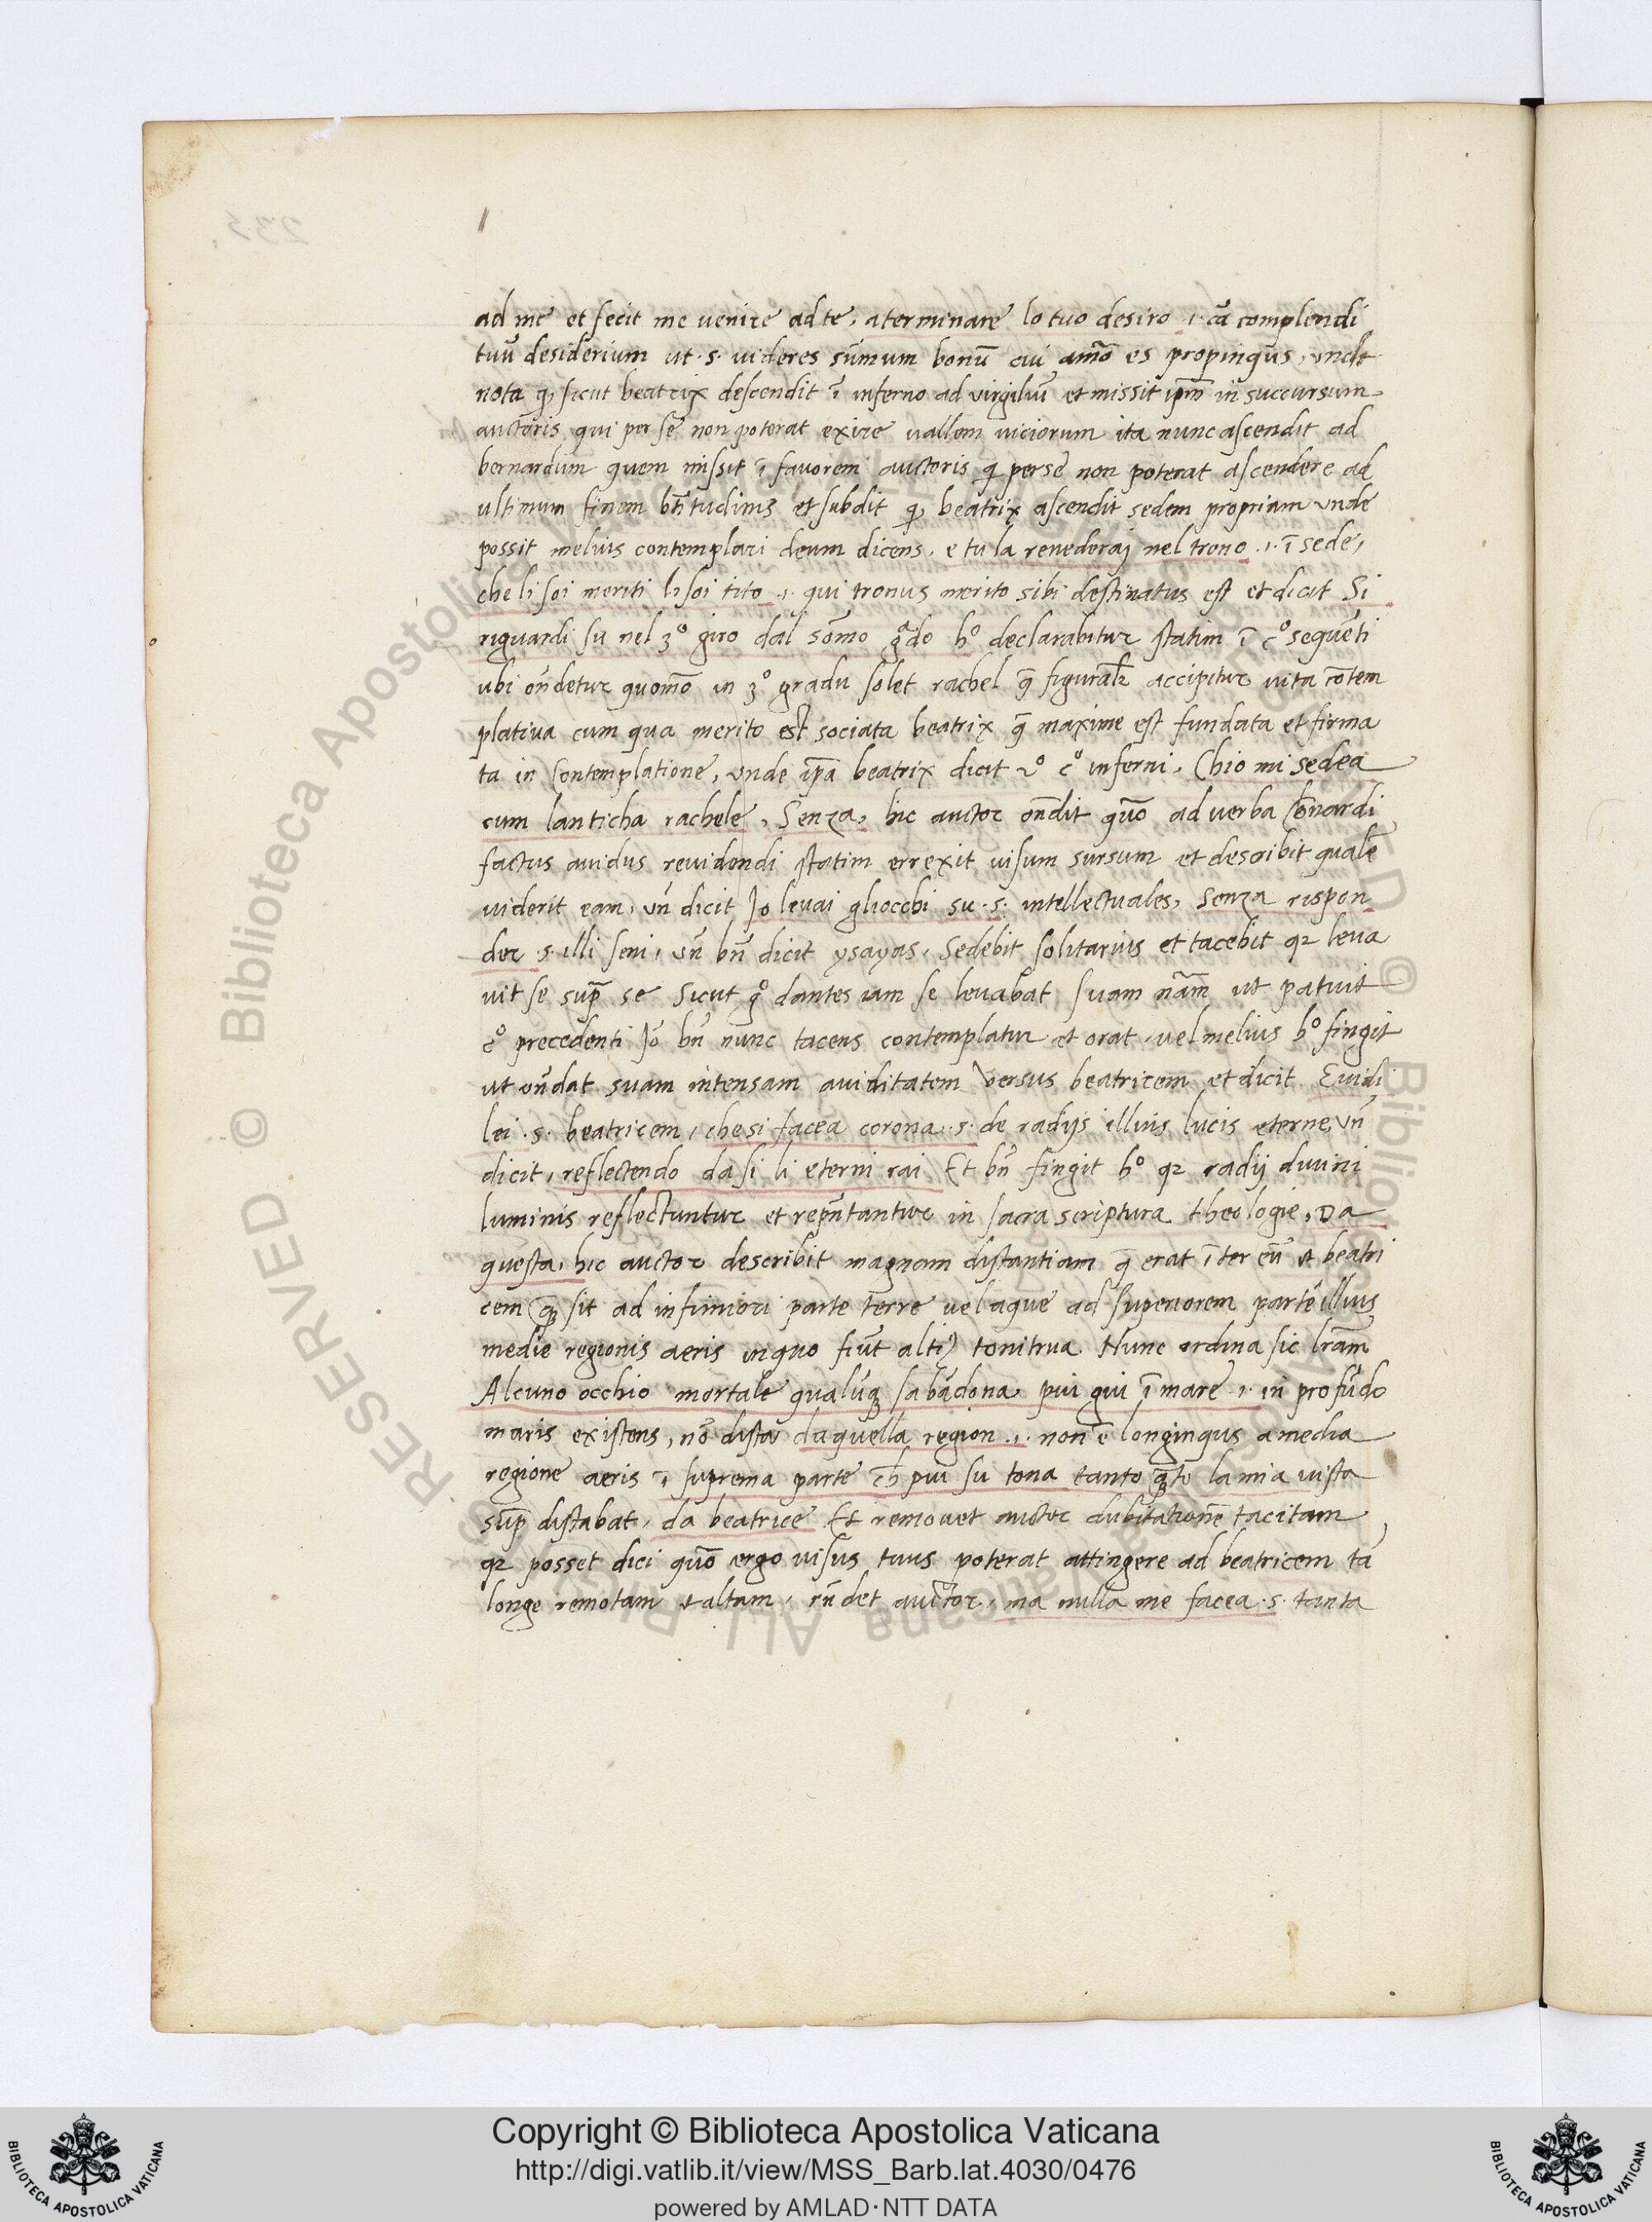 ad me et fecit me venire ad te, a terminare lo tuo desiro .i. cā complendi
tuū desiderium ut .s. videres sūmum bonū cui amō es propinqus, unde
nota qɔ, sicut beatrix descendit ī inferno ad virgiliū et missit ipm̄ in succursum
auctoris, qui per se non poterat exire vallem viciorum ita nunc ascendit ad
bernardum quem missit ī favorem auctoris qi per se non poterat ascendere ad
ultimum finem btītudinis et subdit qɔ, beatrix ascendit sedem propriam unde
possit melius contemplari deum dicens, e tu la revederaj nel trono .i. ī sede,
che li soi meriti li soi tito .i. qui tronus merito sibi destinatus est et dicit Si
riguardi su nel 3º giro dal sōmo gado hº declarabitur statim ī cº sequēti
ubi oñdetur quomō in 3º gradu solet rachel q̄ figuralr̄ accipitur vita cōtem
plativa cum qua merito est sociata beatrix q̄ maxime est fundata et firma
ta in Contemplatione, unde ipā beatrix dicit 2º cº inferni, Chio mi sedea
cum lanticha rachele, Senza, hic auctor oñdit quō ad verba bn̄ardi
factus avidus revidendi statim errexit visum sursum et describit qualr̄
viderit eam, uñ dicit Jo levai gliocchi su .s. intellectuales, Senza rispon
der .s. illi seni, uñ bñ dicit ysayas, Sedebit solitarius et tacebit qz leva
vit se supā se Sicut gº dantes iam se levabat, suam nām ut patuit
cº precedenti Jō bñ nunc tacens contemplatur et orat, vel melius hº fingit
ut oñdat suam intensam aviditatem versus beatricem et dicit Evidi
lei .s. beatricem, che si facea corona .s. de radijs illius lucis eterne uñ
dicit, reflectendo da si li eterni rai Et bñ fingit hº qz radij divini
luminis reflectuntur et repn̄tantur in sacra scriptura theologie, Da
questa, hic auctor describit magnam distantiam q̄ erat īter eū et beatri
cem q̄ sit ad infimiori parte terre vel aque ad superiorem partē illius
medie regionis aeris in quo fiūt alti) tonitrua Nunc ordina sic lrām
Alcuno occhio mortale qualūq sabādona, piu giu ī mare .i. in profūdo
maris existens, nō dista daquella region .i. non ē longinqus a media
regione aeris ī suprema parte ch̄ piu su tona tanto q̄to la mia vista
sup distabat, da beatrice Et removet auctor dubitationē tacitam
qz posset dici quō ergo visus tuus poterat attingere ad beatricem tā
longe remotam et altam, rñdet auctor, ma nulla me facea .s. tanta
Copyright © Biblioteca Apostolica Vaticana
http://digi.vatlib.it/view/MSS_Barb.lat.4030/0476
powered by AMLAD·NTT DATA